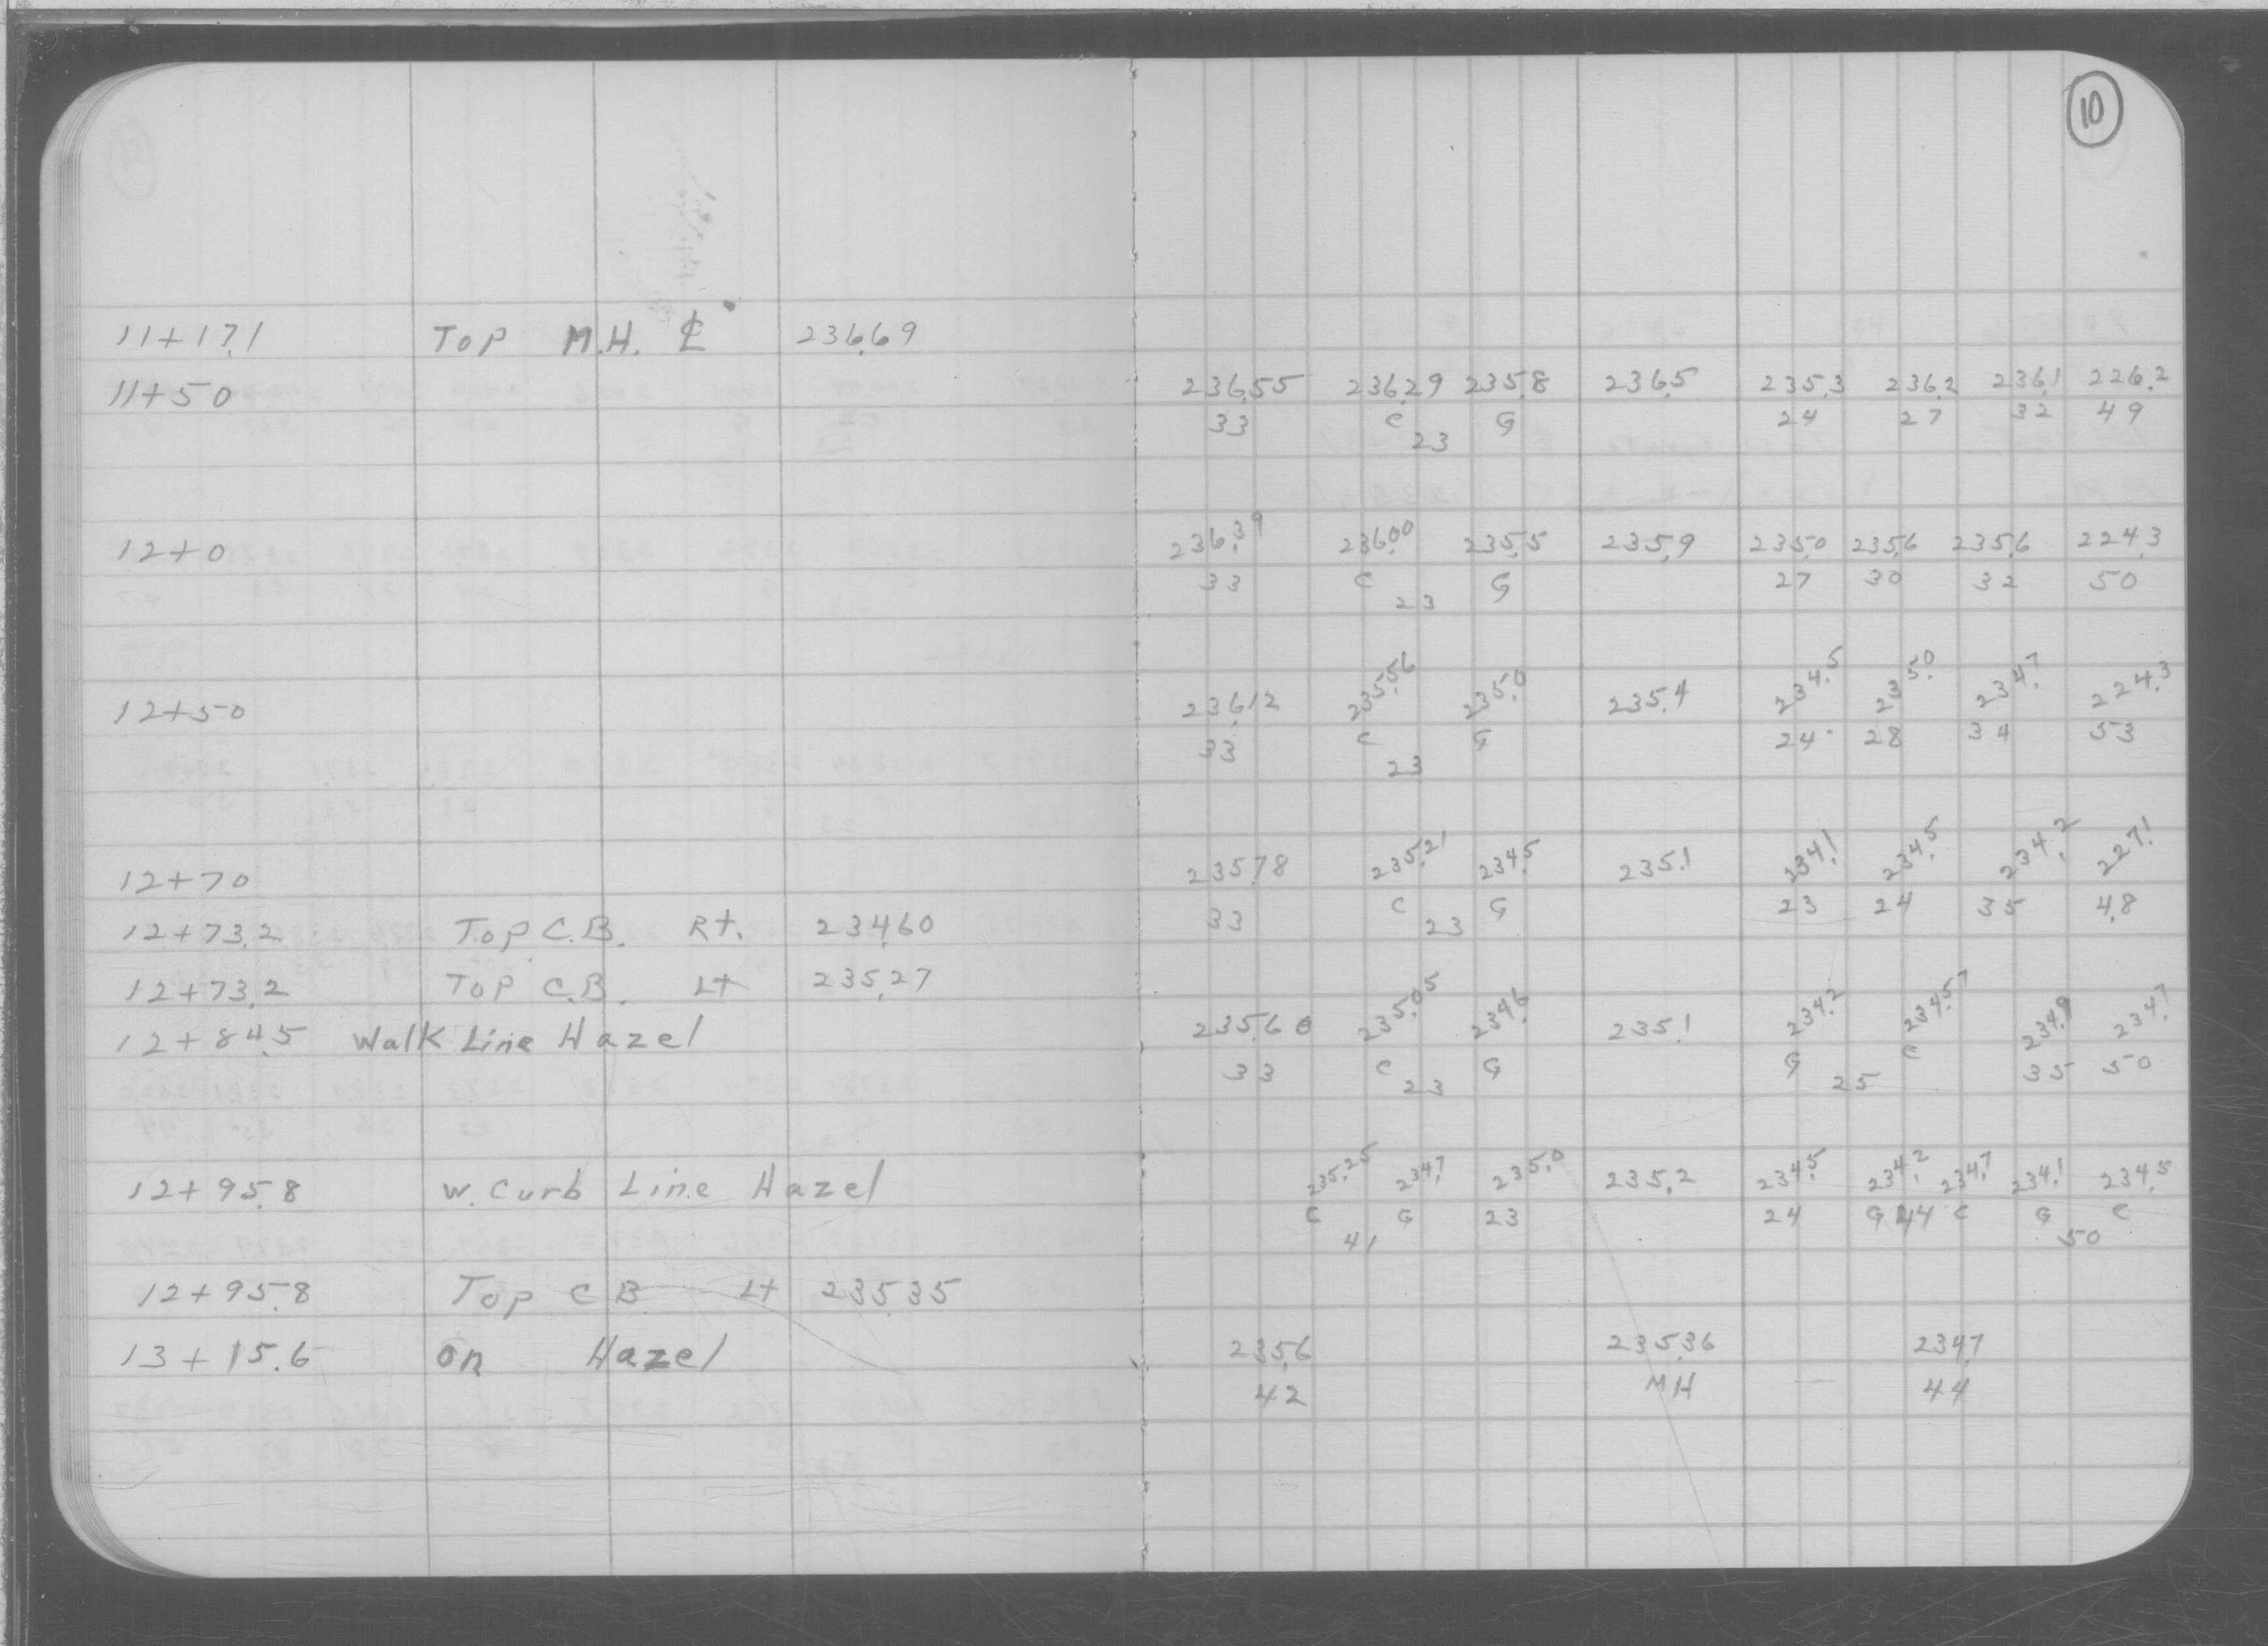 10
11+17.1 Top M.H. ℄ 236.69
11+50 236.55 236.29 235.8 236.5 235.3 236.2 236.1 226.2
33 C G 24 27 32 49
23
12+0 236.39 236.00 235.5 235.9 235.0 235.6 235.6 224.3
33 C G 27 30 32 50
23
12+50 236.12 235.56 235.0 235.4 234.5 235.0 234.7 224.3
33 C G 24 28 34 53
23
12+70 235.78 235.21 234.5 235.1 234.1 234.5 234.2 227.1
33 C G 23 24 35 48
23
12+73.2 Top C.B. Rt. 234.60
12+73.2 Top C.B. Lt 235.27
12+84.5 Walk Line Hazel 235.60 235.05 234.6 235.1 234.2 234.57 234.9 234.7
33 C G G C 35 50
23 25
12+95.8 W. Curb Line Hazel 235.25 234.7 235.0 235.2 234.5 234.2 234.7 234.1 234.5
C G 23 24 G 44 C G C
41 50
12+95.8 Top CB Lt 235.35
13+15.6 on Hazel 235.6 235.36 234.7
42 MH 44